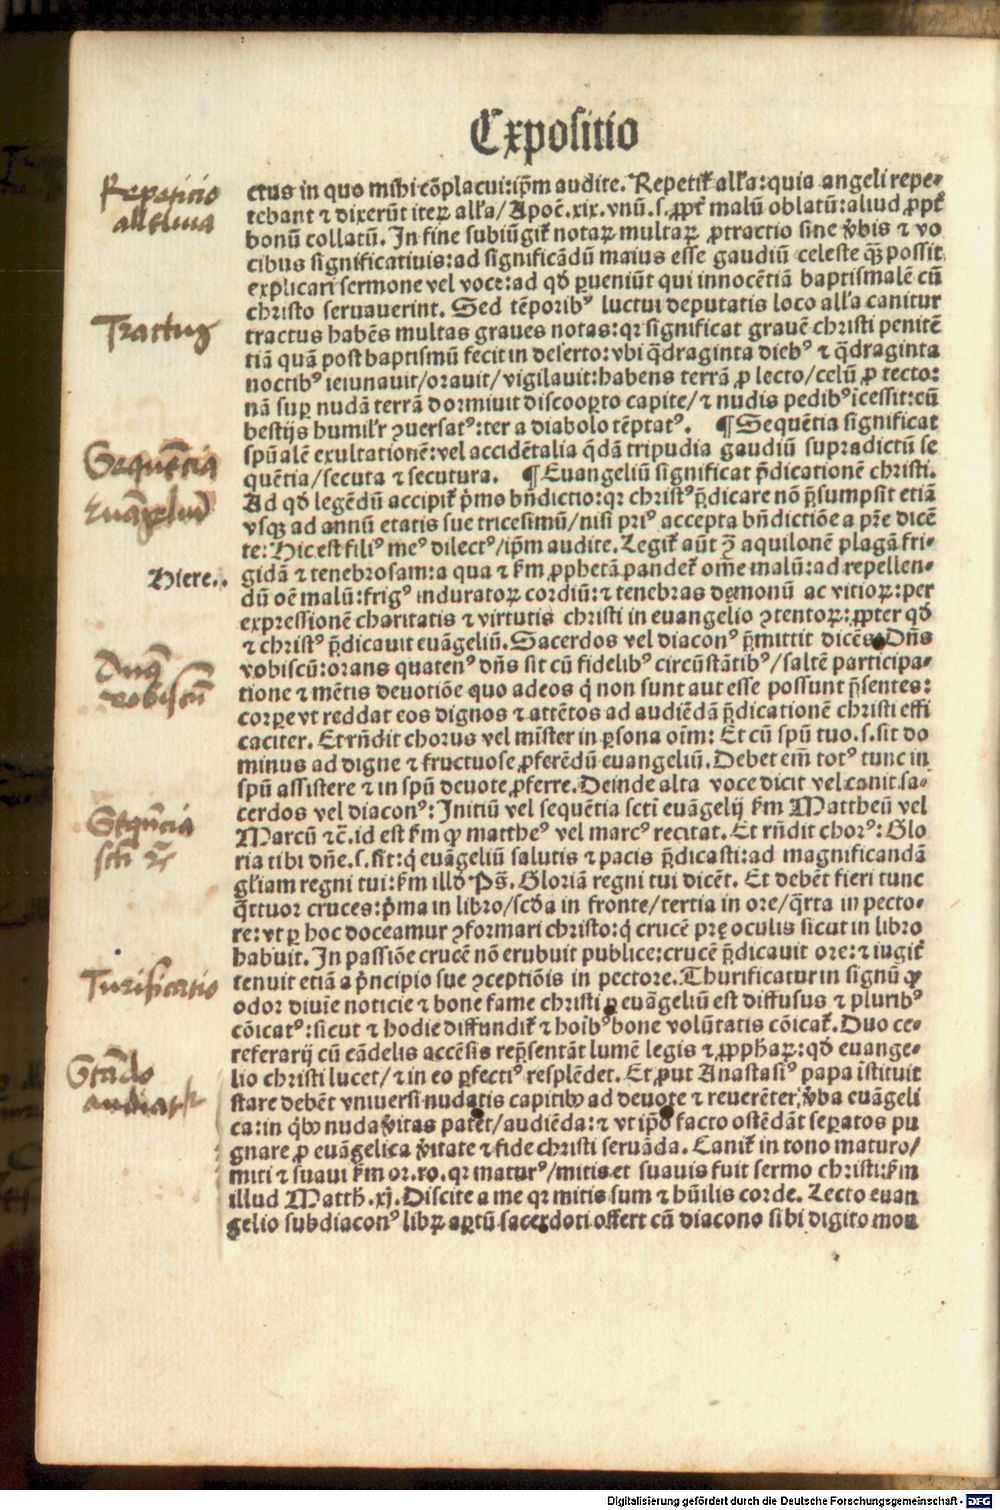 Expositio
Repeticio
alleluia
ctus in quo mihi cōplacui:ip̄m audite. Repetit᷑ all'a:quia angeli repe-
tebant ⁊ dixerūt iteꝝ all'a/Apoc̄.xix.vnū.s.ꝓpt̄ malū oblatū:aliud ꝓpt̄
bonū collatū. In fine subiūgit᷑ notaꝝ multaꝝ ꝓtractio sine v̄bis ⁊ vo
cibus significatiuis:ad significādū maius esse gaudiū celeste qꝫ possit
explicari sermone vel voce:ad qd̄ ꝑueniūt qui innocētiā baptismalē cū
christo seruauerint. Sed tēporibꝰ luctui deputatis loco all'a canitur
Tractus
tractus habēs multas graues notas:qr significat grauē christi penitē
tiā quā post baptismū fecit in deserto:vbi q̄draginta diebꝰ ⁊ q̄draginta
noctibꝰ ieiunauit/orauit/vigilauit:habens terrā ꝓ lecto/celū ꝓ tecto:
nā suꝑ nudā terrā dormiuit discooꝑto capite/⁊ nudis pedibꝰ īcessit:cū
bestijs humil'r ꝯuersatꝰ:ter a diabolo tēptatꝰ. ¶ Sequētia significat
Sequētia
spūalē exultationē:vel accidētalia q̄dā tripudia gaudiū supradictū se
quētia/secuta ⁊ secutura. ¶ Euangeliū significat p̄dicationē christi.
Euāgeliū
Ad qd̄ legēdū accipit᷑ pͥmo bn̄dictio:qr christꝰ p̄dicare nō p̄sumpsit etiā
vsqꝫ ad annū etatis sue tricesimū/nisi priꝰ accepta bn̄dictiōe a pr̄e dicē
te:Hic est filiꝰ meꝰ dilectꝰ/ip̄m audite. Legit᷑ aūt ꝯ̄ aquilonē plagā fri-
Hiere..
gidā ⁊ tenebrosam:a qua ⁊ km̄ ꝓphetā pandet᷑ om̄e malū:ad repellen-
dū oē malū:frigꝰ induratoꝝ cordiū:⁊ tenebras dęmonū ac vitioꝝ:per
expressionē charitatis ⁊ virtutis christi in euangelio ꝯtentoꝝ:ꝓpter qd̄
⁊ christꝰ p̄dicauit euāgeliū. Sacerdos vel diaconꝰ p̄mittit dicēs Dn̄s
Dn̄s
vobiscū
vobiscū:orans quatenꝰ dn̄s sit cū fidelibꝰ circūstātibꝰ/saltē participa-
tione ⁊ mētis deuotiōe quo adeos qͥ non sunt aut esse possunt p̄sentes:
corꝑe vt reddat eos dignos ⁊ attētos ad audiēdā p̄dicationē christi effi
caciter. Et rn̄dit chorus vel mīster in ꝑsona oīm: Et cū spū tuo.s.sit do
minus ad digne ⁊ fructuose ꝓferēdū euangeliū. Debet em̄ totꝰ tunc in
spū assistere ⁊ in spū deuote ꝓferre. Deinde alta voce dicit vel canit sa-
cerdos vel diaconꝰ: Initiū vel sequētia scti euāgelij km̄ Mattheū vel
Seqn̄cia
scti ⁊c̄
Marcū ⁊c̄.id est km̄ qp̄ mattheꝰ vel marcꝰ recitat. Et rn̄dit chorꝰ: Glo
ria tibi dn̄e.s.sit:qͥ euāgeliū salutis ⁊ pacis p̄dicasti:ad magnificandā
gl'iam regni tui:km̄ illd̄ Ps̄. Gloriā regni tui dicēt. Et debēt fieri tunc
q̄ttuor cruces:pͥma in libro/scd̄a in fronte/tertia in ore/q̄rta in pecto-
re:vt ꝑ hoc doceamur ꝯformari christo:qͥ crucē prę oculis sicut in libro
habuit. In passiōe crucē nō erubuit publice:crucē p̄dicauit ore:⁊ iugit᷑
Turificatio
tenuit etiā a pͥncipio sue ꝯceptiōis in pectore. Thurificatur in signū qp̄
odor diuīe noticie ⁊ bone fame christi ꝑ euāgeliū est diffusus ⁊ pluribꝰ
cōicatꝰ:sicut ⁊ hodie diffundit᷑ ⁊ hoībꝰ bone volūtatis cōicat᷑. Duo ce-
referarij cū cādelis accēsis rep̄sentāt lumē legis ⁊ ꝓphaꝝ:qd̄ euange-
Stādo
audiatr
lio christi lucet/⁊ in eo ꝑfectiꝰ resplēdet. Et ꝓut Anastasiꝰ papa īstituit
stare debēt vniuersi nudatis capitibꝰ ad deuote ⁊ reuerēter v̄ba euāgeli
ca:in qͥbꝰ nuda v̄itas patet/audiēda:⁊ vt ip̄o facto ostēdāt se ꝑatos pu
gnare ꝓ euāgelica v̄itate ⁊ fide christi seruāda. Canit᷑ in tono maturo/
miti ⁊ suaui km̄ or.ro.qr maturꝰ/mitis et suauis fuit sermo christi:km̄
illud Matth̄.xj. Discite a me qr mitis sum ⁊ hūilis corde. Lecto euan
gelio subdiaconꝰ libꝝ aꝑtū sacerdoti offert cū diacono sibi digito mon
Digitalisierung gefördert durch die Deutsche Forschungsgemeinschaft - DFG